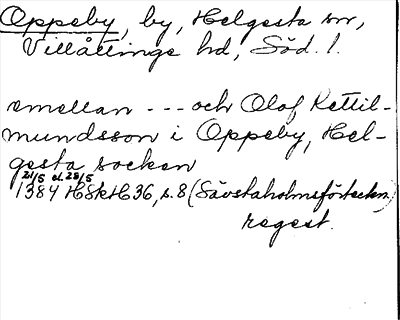 Oppeby, by, Helgesta sn,
Villåttinge hd, Söd. l.
emellan --- och Olof Kettil-
mundsson i Oppeby, Hel-
gesta socken
21/5 el. 28/5
1384 HSkH 36, s. 8 (Sävstaholmsförteckn.)
regest.